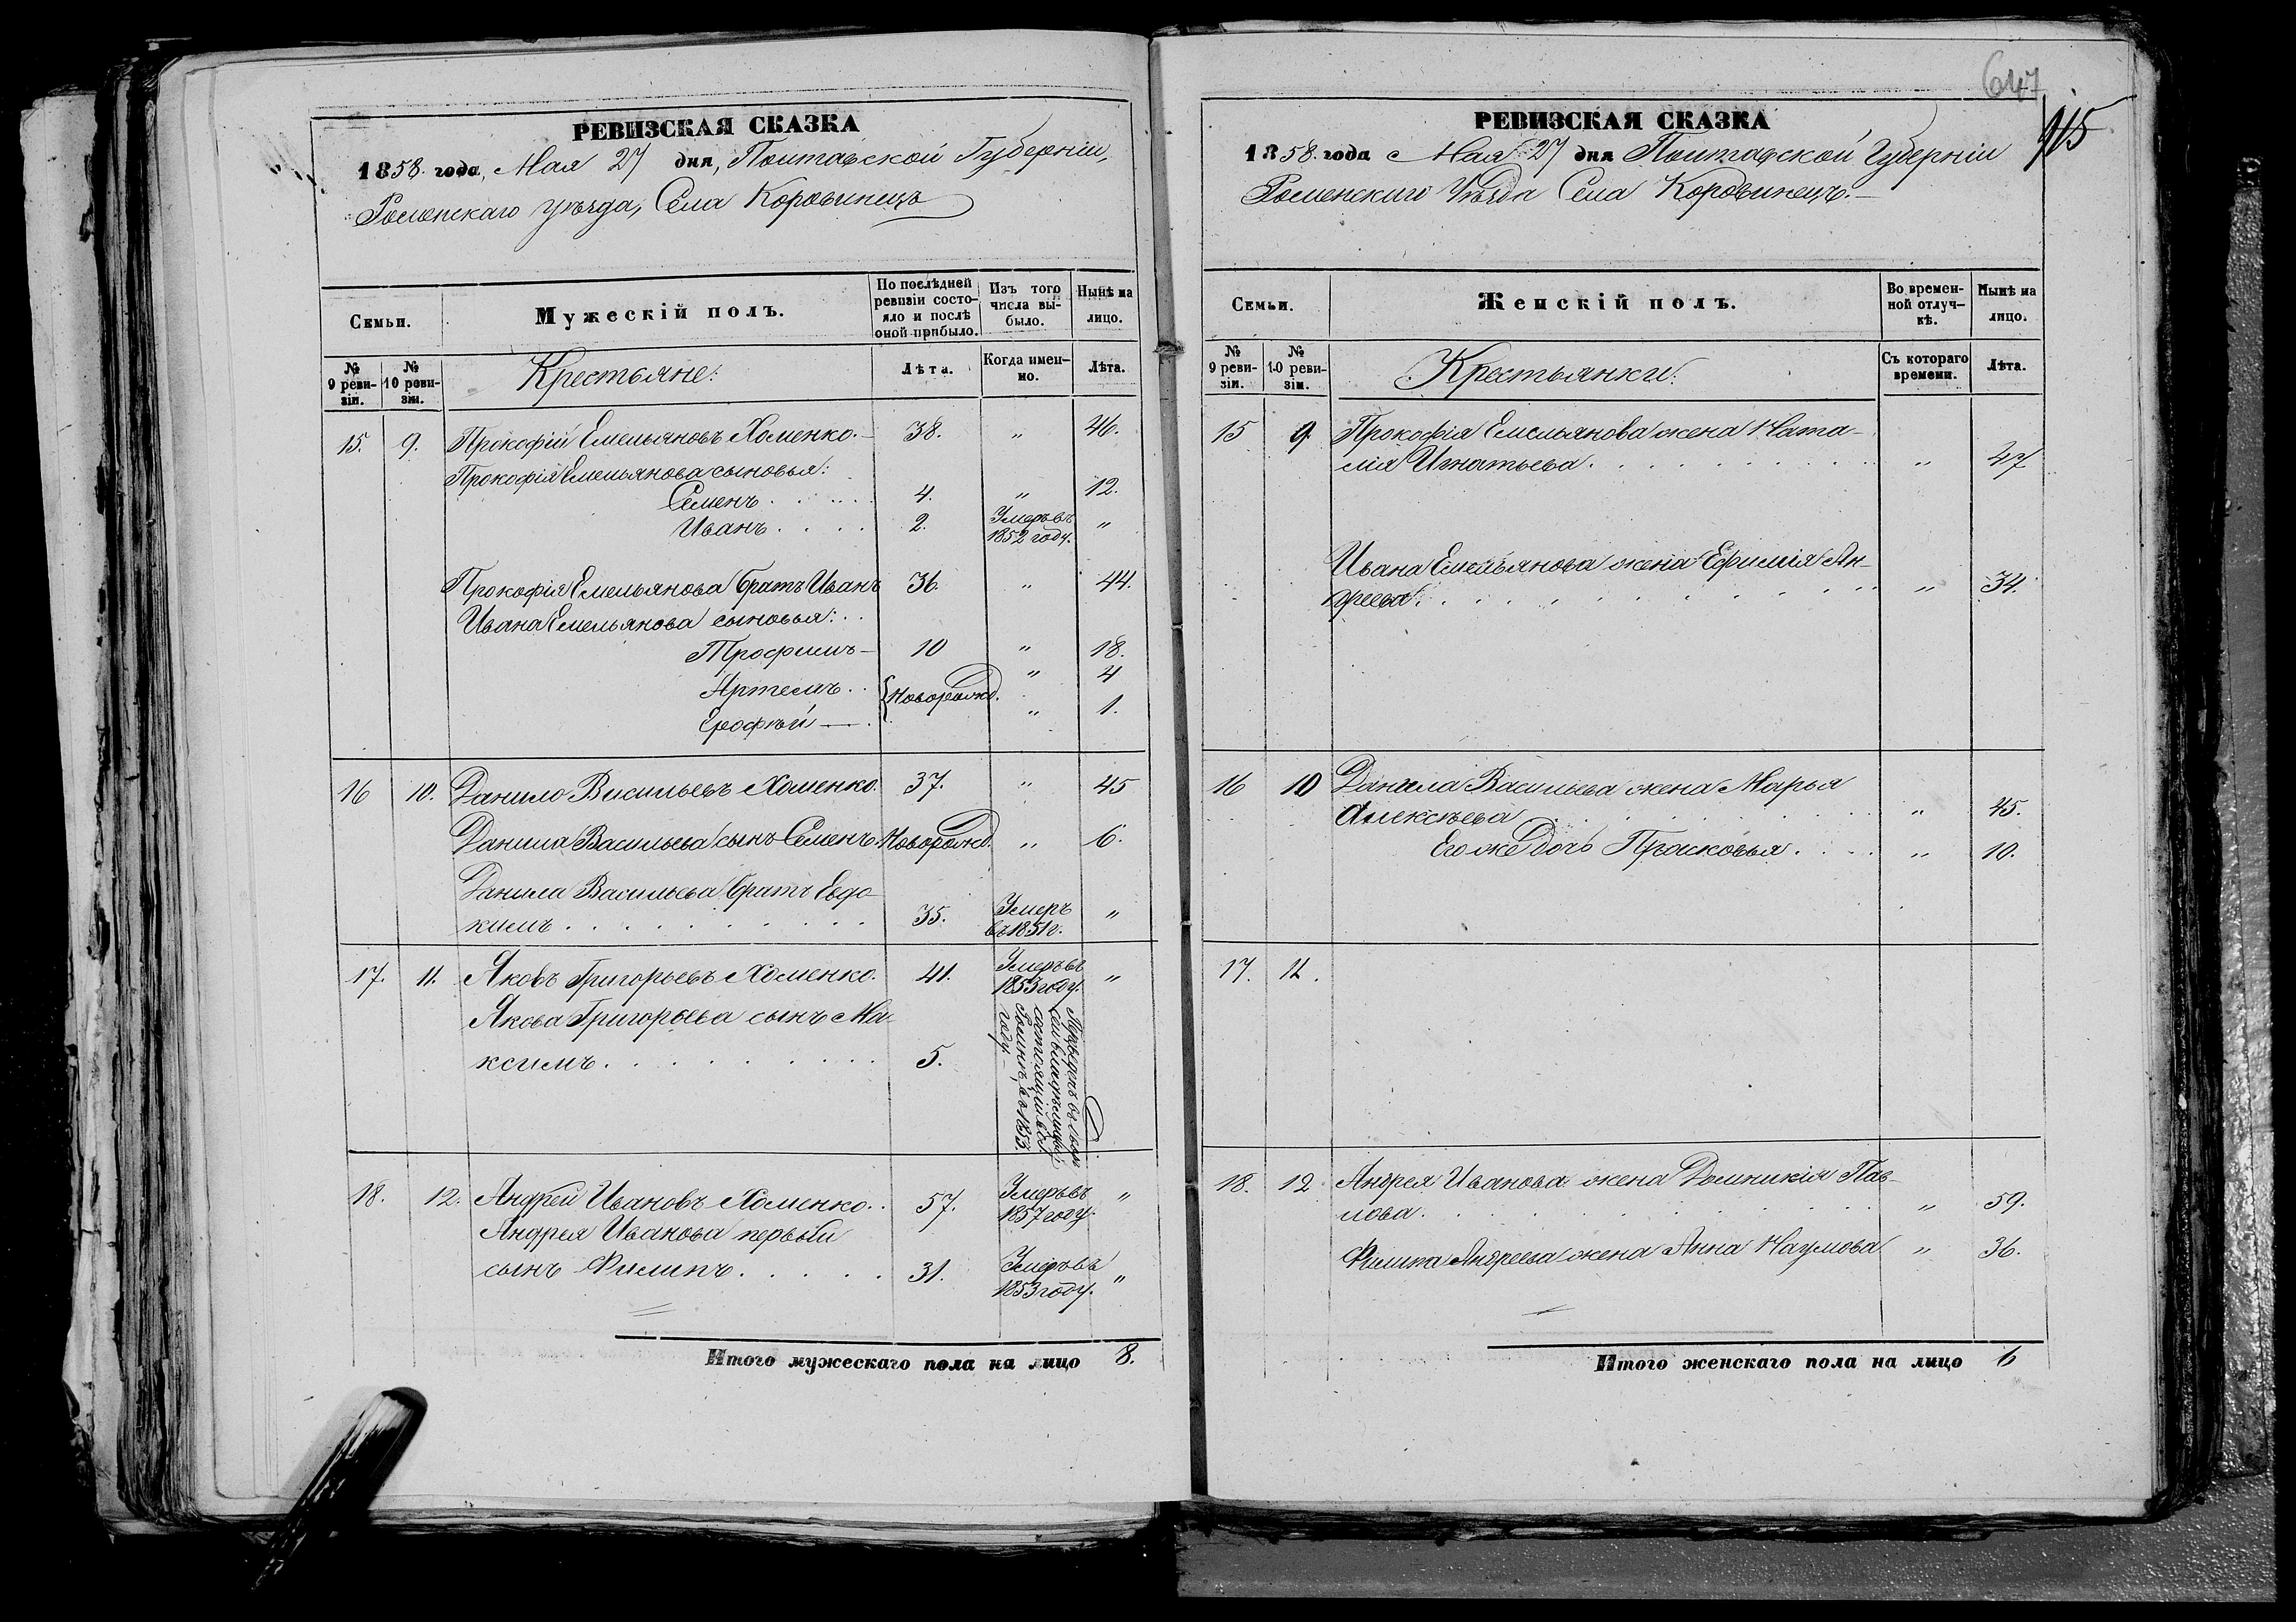 РЕВИЗСКАЯ СКАЗКА
1858. года, Мая 27 дня, Полтавской Губерніи,
Роменскаго уѣзда, Села Коровинецъ
Семьи.
Мужескій полъ.
По послѣдней ревизіи состояло и послѣ оной прибыло.
Изъ того числа выбыло.
Нынѣ на лицо.
№ 9 ревизіи.
№ 10 ревизіи.
Крестьяне:
Лѣта.
Когда именно.
Лѣта.
15. 9. Прокофій Емельяновъ Хоменко.- 38. " 46.
Прокофія Емельянова сыновья:
Семенъ . . . . 4. " 12.
Иванъ . . . . 2. Умеръ въ 1852 году. "
Прокофія Емельянова братъ Иванъ 36. " 44.
Ивана Емельянова сыновья: . .
Трофимъ - 10 " 18.
Артемъ . . { Новорожд. " 4
Ерофѣй - . " 1.
16 10. Данило Васильевъ Хоменко. 37. " 45
Данила Васильева сынъ Семенъ. Новорожд. " 6.
Данила Васильева братъ Евдо-
кимъ . . . . . . . . 35. Умеръ въ 1851 г. "
17. 11. Яковъ Григорьевъ Хоменко. 41. Умеръ въ 1853 году. "
Якова Григорьева сынъ Ма-
ксимъ . . . . . . . . 5.
состоящій въ
въ 1853.
году. -
18. 12. Андрей Ивановъ Хоменко. . 57. Умеръ въ 1857 году. "
Андрея Иванова первый
сынъ Филипъ . . . . . 31. Умеръ въ 1853 году. "
Итого мужескаго пола на лицо 8.
647
РЕВИЗСКАЯ СКАЗКА
1858. года Мая 27 дня Полтавской Губерніи
Роменскаго Уѣзда Села Коровинецъ. -
Семьи.
Женскій полъ.
Во временной отлучкѣ.
Нынѣ на лицо.
№ 9 ревизіи.
№ 10 ревизіи.
Крестьянки:
Съ котораго времени.
Лѣта.
15 9. Прокофія Емельянова жена Ната-
лія Игнатьева . . . . . . . " 47
Ивана Емельянова жена Ефимія Ан-
дреева . . . . . . . . . " 34.
16 10 Данила Васильева жена Марья
Алексѣева . . . . . . . " 45.
Его же дочь Прасковья . . . . " 10.
17. 11.
18. 12 Андрея Иванова жена Домникія Пав-
лова . . . . . . . . . " 59.
Филипа Андреева жена Анна Наумова " 36.
Итого женскаго пола на лицо 6